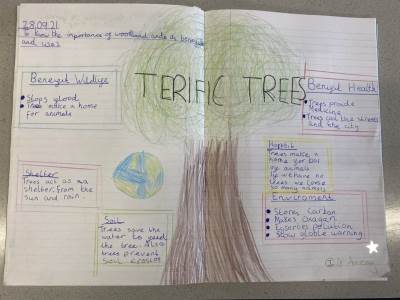 28.09.21
To know the importance of woodland and its benefits
and uses
TERIFIC TREES
Benefit Wildlife
Stops flood
Trees make a home
for animals
Benefit Health
Trees provide
Medicine
Trees cool the streets
and the city
Shelter
Trees act as a
shelter from the
sun and rain.
Habitat
Trees make a
home for our
animals
if we have no
trees we lose
so many animals
Soil
Trees save the
water to feed
the tree. Also
trees prevent
Soil erosion
Enviroment
Stores Carbon
Makes Oxagan
Absorbes pollution
Slow globle warming